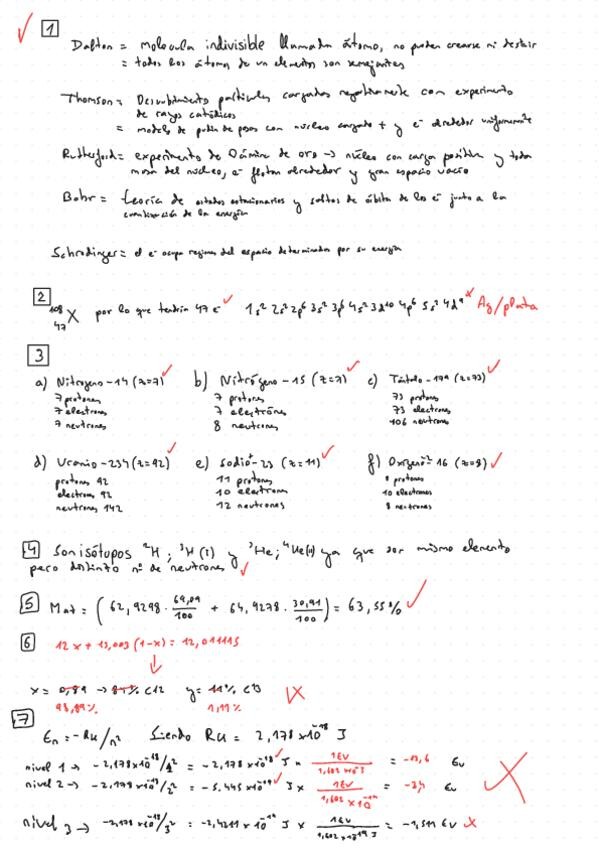 1
Dalton = molecula indivisible llamada átomo, no pueden crearse ni destuir
= todos los átomos de un elementos son semejantes
Thomson = Descubrimiento partículas cargadas negativamente con experimento
de rayos catódicos
= modelo de pudin de pasas con nucleo cargado + y e⁻ alrededor uniformemente
Rutherford = experimento de lámina de oro → núcleo con carga positiva y toda
masa del nucleo, e⁻ flotan alrededor y gran espacio vacio
Bohr = teoría de estados estacionarios y saltos de órbita de los e⁻ junto a la
cuantización de la energía
Schrodinger = el e⁻ ocupa regiones del espacio determinadas por su energía
2
¹⁰⁸₄₇X por lo que tendrín 47 e⁻ 1s² 2s² 2p⁶ 3s² 3p⁶ 4s² 3d¹⁰ 4p⁶ 5s² 4d⁹ Ag/plata
3
a) Nitrogeno-14 (z=7) b) Nitrógeno-15 (z=7) c) Tántalo-179 (z=73)
7 protones 7 protones 73 protones
7 electrones 7 electrónes 73 electrones
7 neutrones 8 neutrones 106 neutrones
d) Uranio-234 (z=92) e) Sodio⁺-23 (z=11) f) Oxígeno²⁻16 (z=8)
protones 92 11 protones 8 protones
electrones 92 10 electrones 10 electrones
neutrones 142 12 neutrones 8 neutrones
4 Son isótopos ²H; ³H y ³He; ⁴He ya que son mismo elemento
pero distinto nº de neutrones
5 Mat = (62,9298 · 69,09/100 + 64,9278 · 30,91/100) = 63,55%
6 12x + 13,003 (1-x) = 12,011115
x = 0,89 → 89% C12 y = 11% C13
98,89% 1,11%
7
En = -RH/n² Siendo RH = 2,178×10⁻¹⁸ J
nivel 1 → -2,178×10⁻¹⁸/1² = -2,178×10⁻¹⁸ J × 1EV/1,602×10⁻¹⁹J = -13,6 Ev
nivel 2 → -2,178×10⁻¹⁸/2² = -5,445×10⁻¹⁹ J × 1EV/1,602×10⁻¹⁹ = -3,4 Ev
nivel 3 → -2,178×10⁻¹⁸/3² = J × 1EV/1,602×10⁻¹⁹J = -1,511 Ev